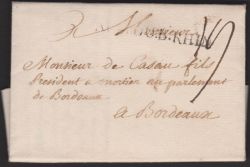 A Monsieur
B.RHIN
Monsieur de Casau fils
President a mortier au parlement
de Bordeaux
a Bordeaux